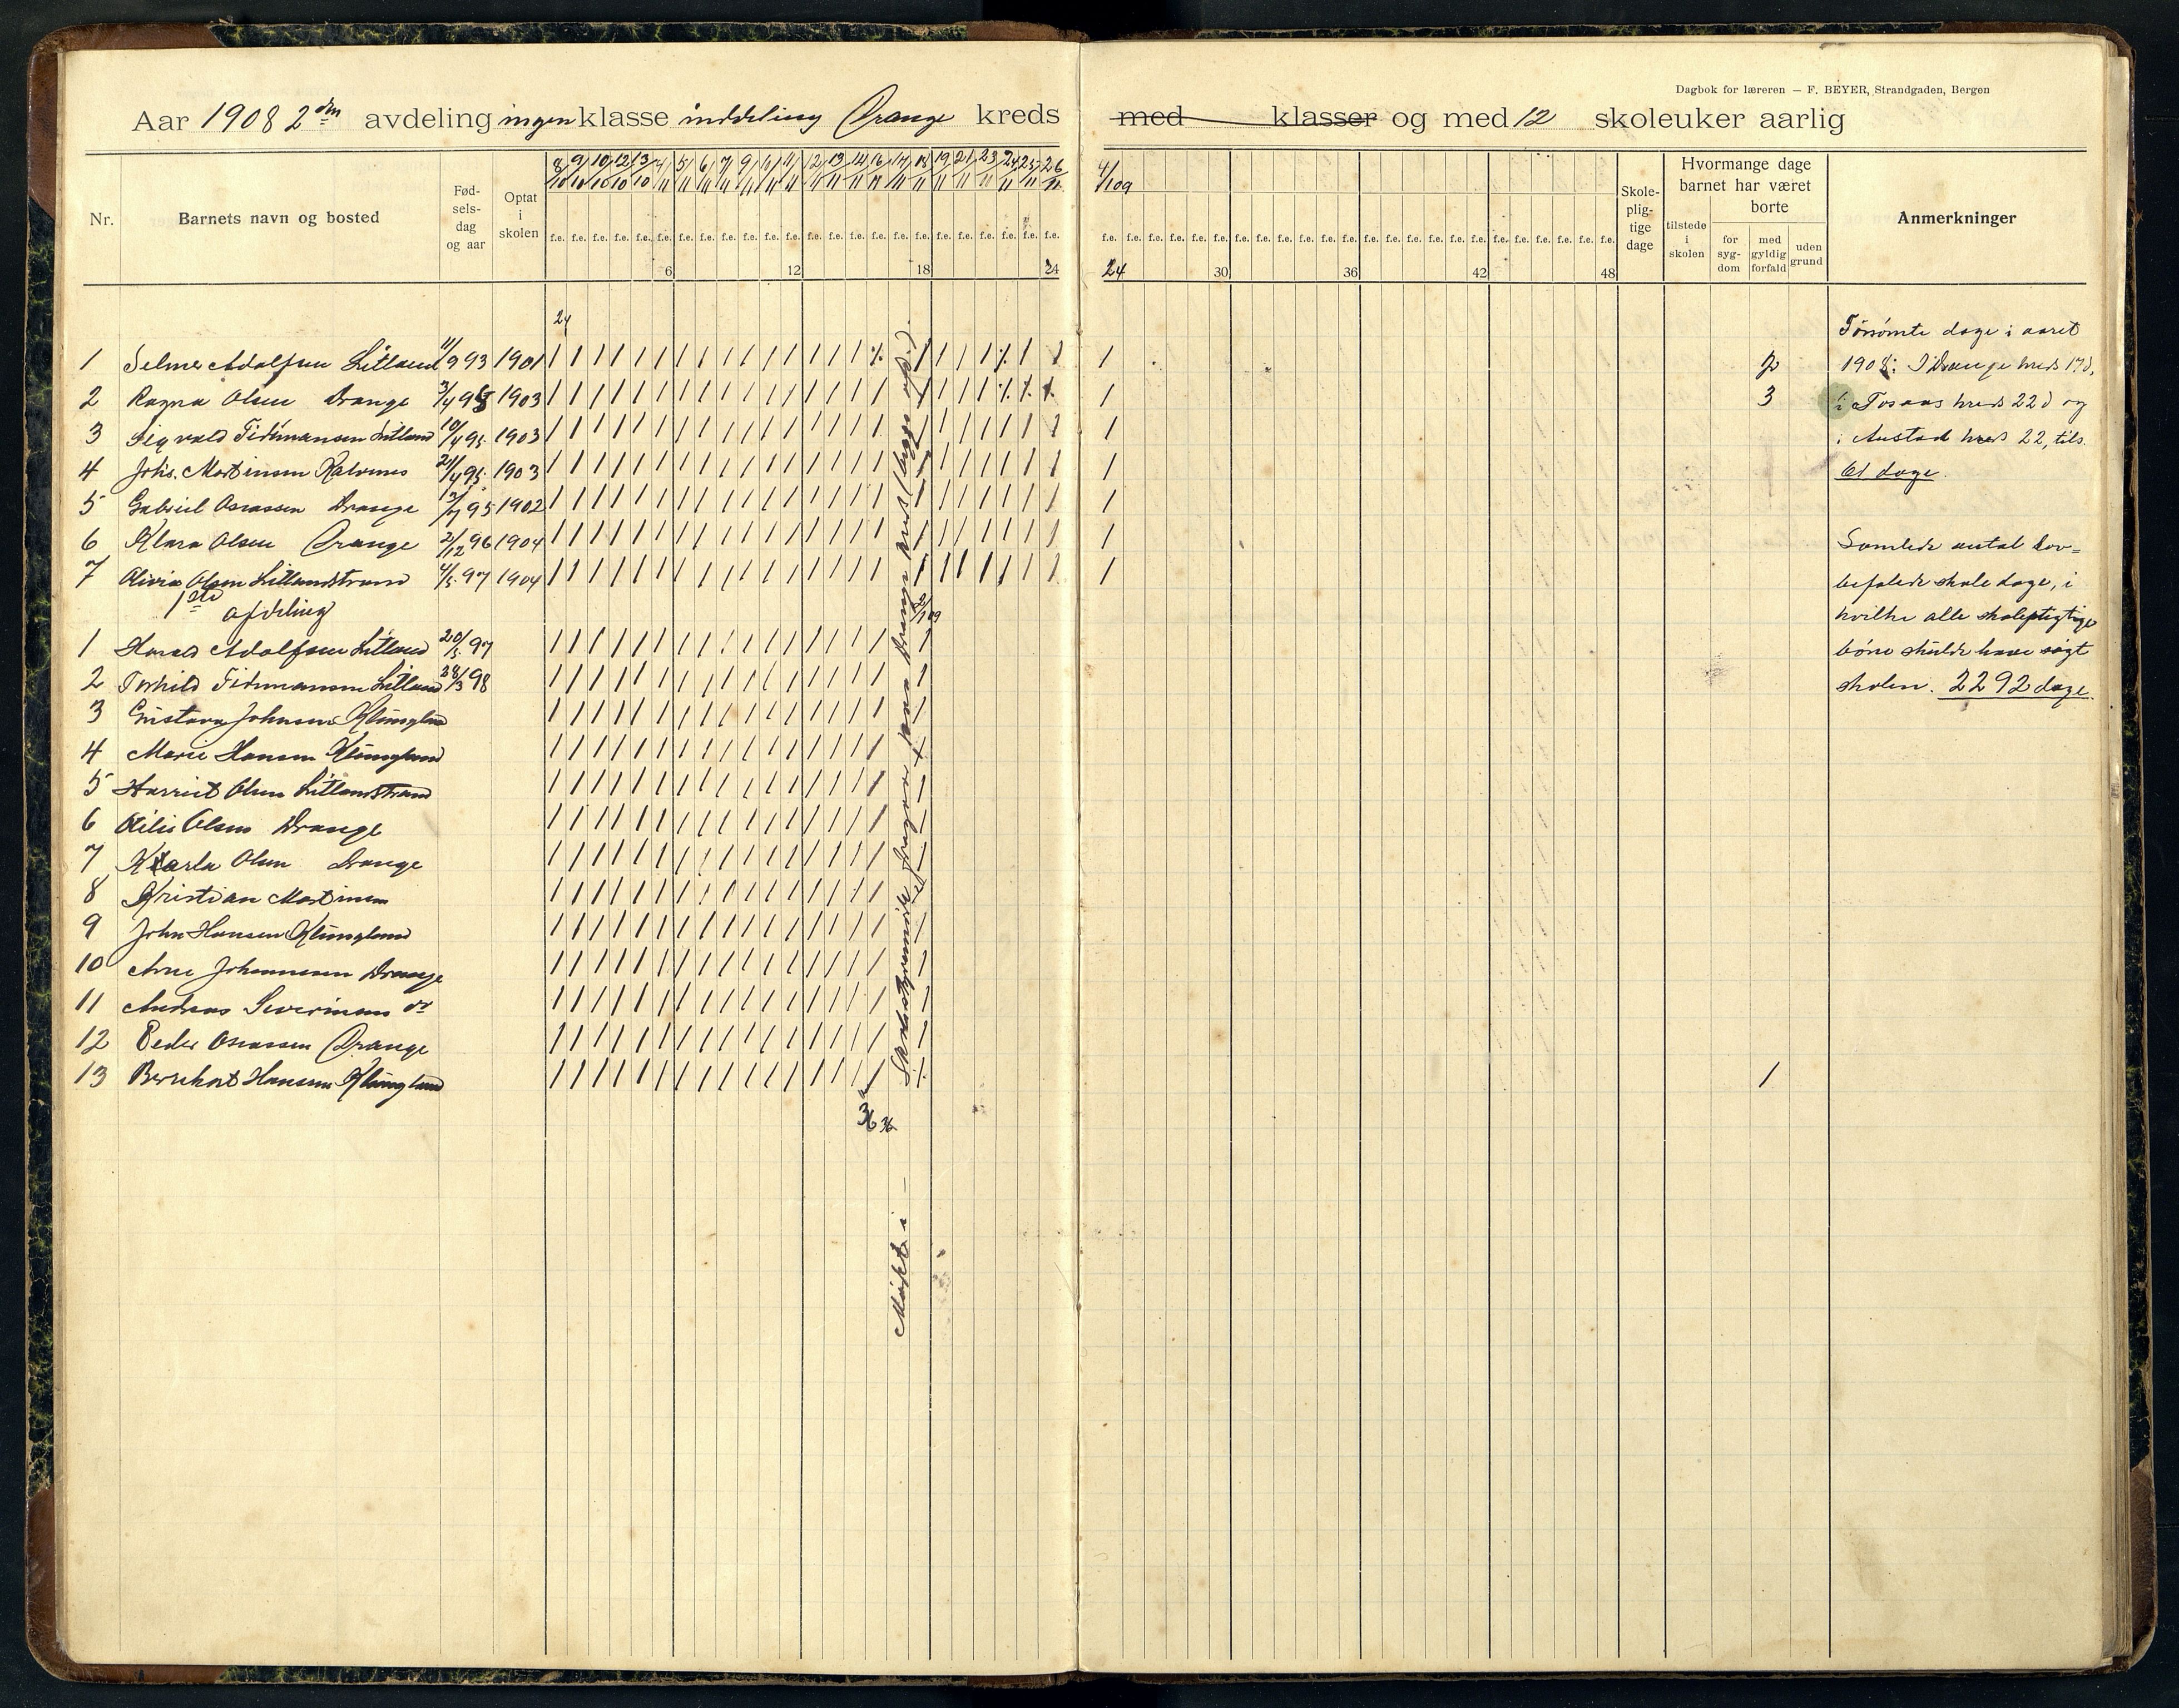 Dagbok for læreren — F. BEYER, Strandgaden, Bergen
Aar 1908 2den avdeling ingen klasse inddeling Drange kreds med klasser og med 12 skoleuker aarlig
Nr. Barnets navn og bosted Fødselsdag og aar Optat i skolen
8/10 9/10 10/10 12/10 13/10 4/11 5/11 6/11 7/11 9/11 10/11 11/11 12/11 13/11 14/11 16/11 17/11 18/11 19/11 21/11 23/11 24/11 25/11 26/11 4/1 09
6 12 18 24 24 30 36 42 48
Skolepligtige dage
Hvormange dage barnet har været
tilstede i skolen
borte
for sygdom
med gyldig forfald
uden grund
Anmerkninger
24
1 Selmer Adolfsen Litland 11/9 93 1901 2
2 Ragna Olsen Drange 3/4 95 1903 3
3 Sigvald Tidemansen Litland 10/4 95 1903
4 Johs. Martinsen Kalvenes 24/4 95 1903
5 Gabriel Aanassen Drange 95 1902
6 Klara Olsen Drange 2/12 96 1904
7 Olivia Olsen Litlandstrand 4/5 97 1904
1ste afdeling
2/1 09
1 Harald Adolfsen Litland 20/5 97
2 Torhild Tidemansen Litland 28/3 98
3 Gustava Johnsen Klungland
4 Marie Hansen Klungland
5 Harriet Olsen Litlandstrand
6 Olsen Drange
7 Karla Olsen Drange
8 Kristian Martinsen
9 John Hansen Klungland
10 Arne Johannesen Drange
11 Andreas Severinsen do
12 Peder Aanassen Drange
13 Bernhart Hansen Klungland 1
36 36
Forsømte dage i aaret
1908: I Drange kreds 17 d,
i Tosaas kreds 22 d og
i Austad kreds 22, tils.
61 dage.
Samlede antal lov=
befalede skole dage, i
hvilke alle skolepligtige
børn skulde have søgt
skolen. 2292 dage.